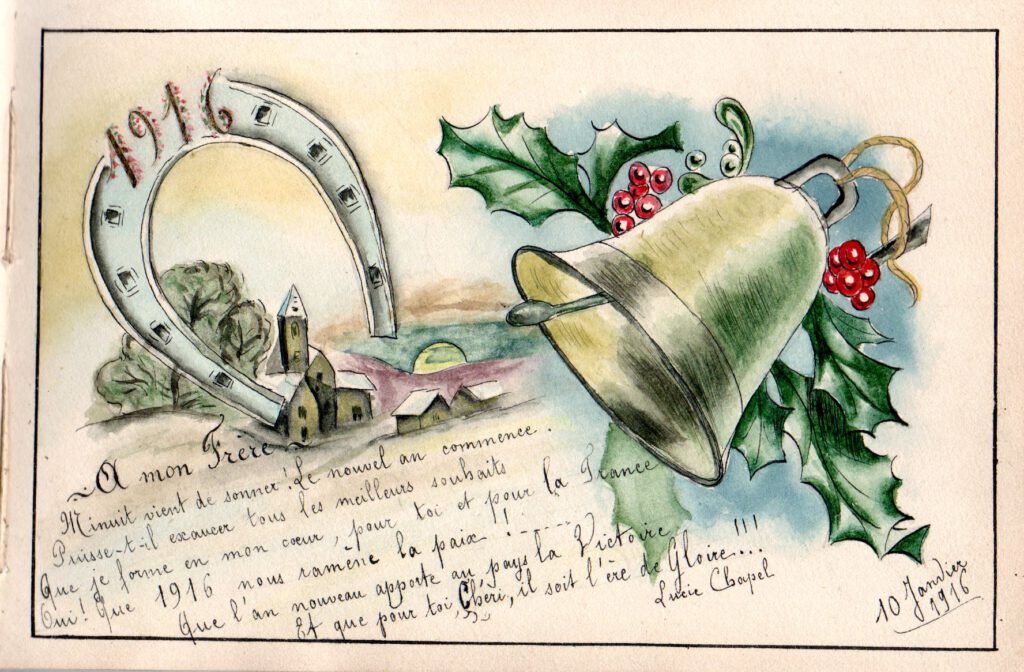 1916
A mon Frère
Minuit vient de sonner ! Le nouvel an commence.
Puisse-t-il exaucer tous les meilleurs souhaits
Que je forme en mon cœur, pour toi et pour la France
Oui ! Que 1916 nous ramène la paix !!
Que l'an nouveau apporte au pays la Victoire
Et que pour toi Chéri, il soit l'ère de Gloire !!!...
Lucie Chapel
10 Janvier
1916